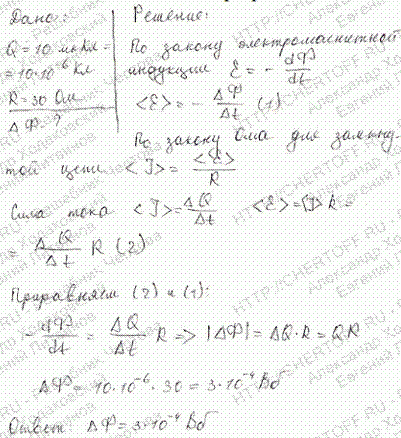 Дано:
Q = 10 мкКл =
= 10·10⁻⁶ Кл
R = 30 Ом
ΔФ - ?
Решение:
По закону электромагнитной
индукции Ɛ = - dФ/dt
<Ɛ> = - ΔФ/Δt (1)
По закону Ома для замкну-
той цепи <J> = <Ɛ>/R
Сила тока <J> = ΔQ/Δt <Ɛ> = <J> R =
= ΔQ/Δt R (2)
Приравняем (2) и (1):
- dФ/dt = ΔQ/Δt R => |ΔФ| = ΔQ·R = QR
ΔФ = 10·10⁻⁶ · 30 = 3·10⁻⁴ Вб
Ответ: ΔФ = 3·10⁻⁴ Вб
HTTP://CHERTOFF.RU